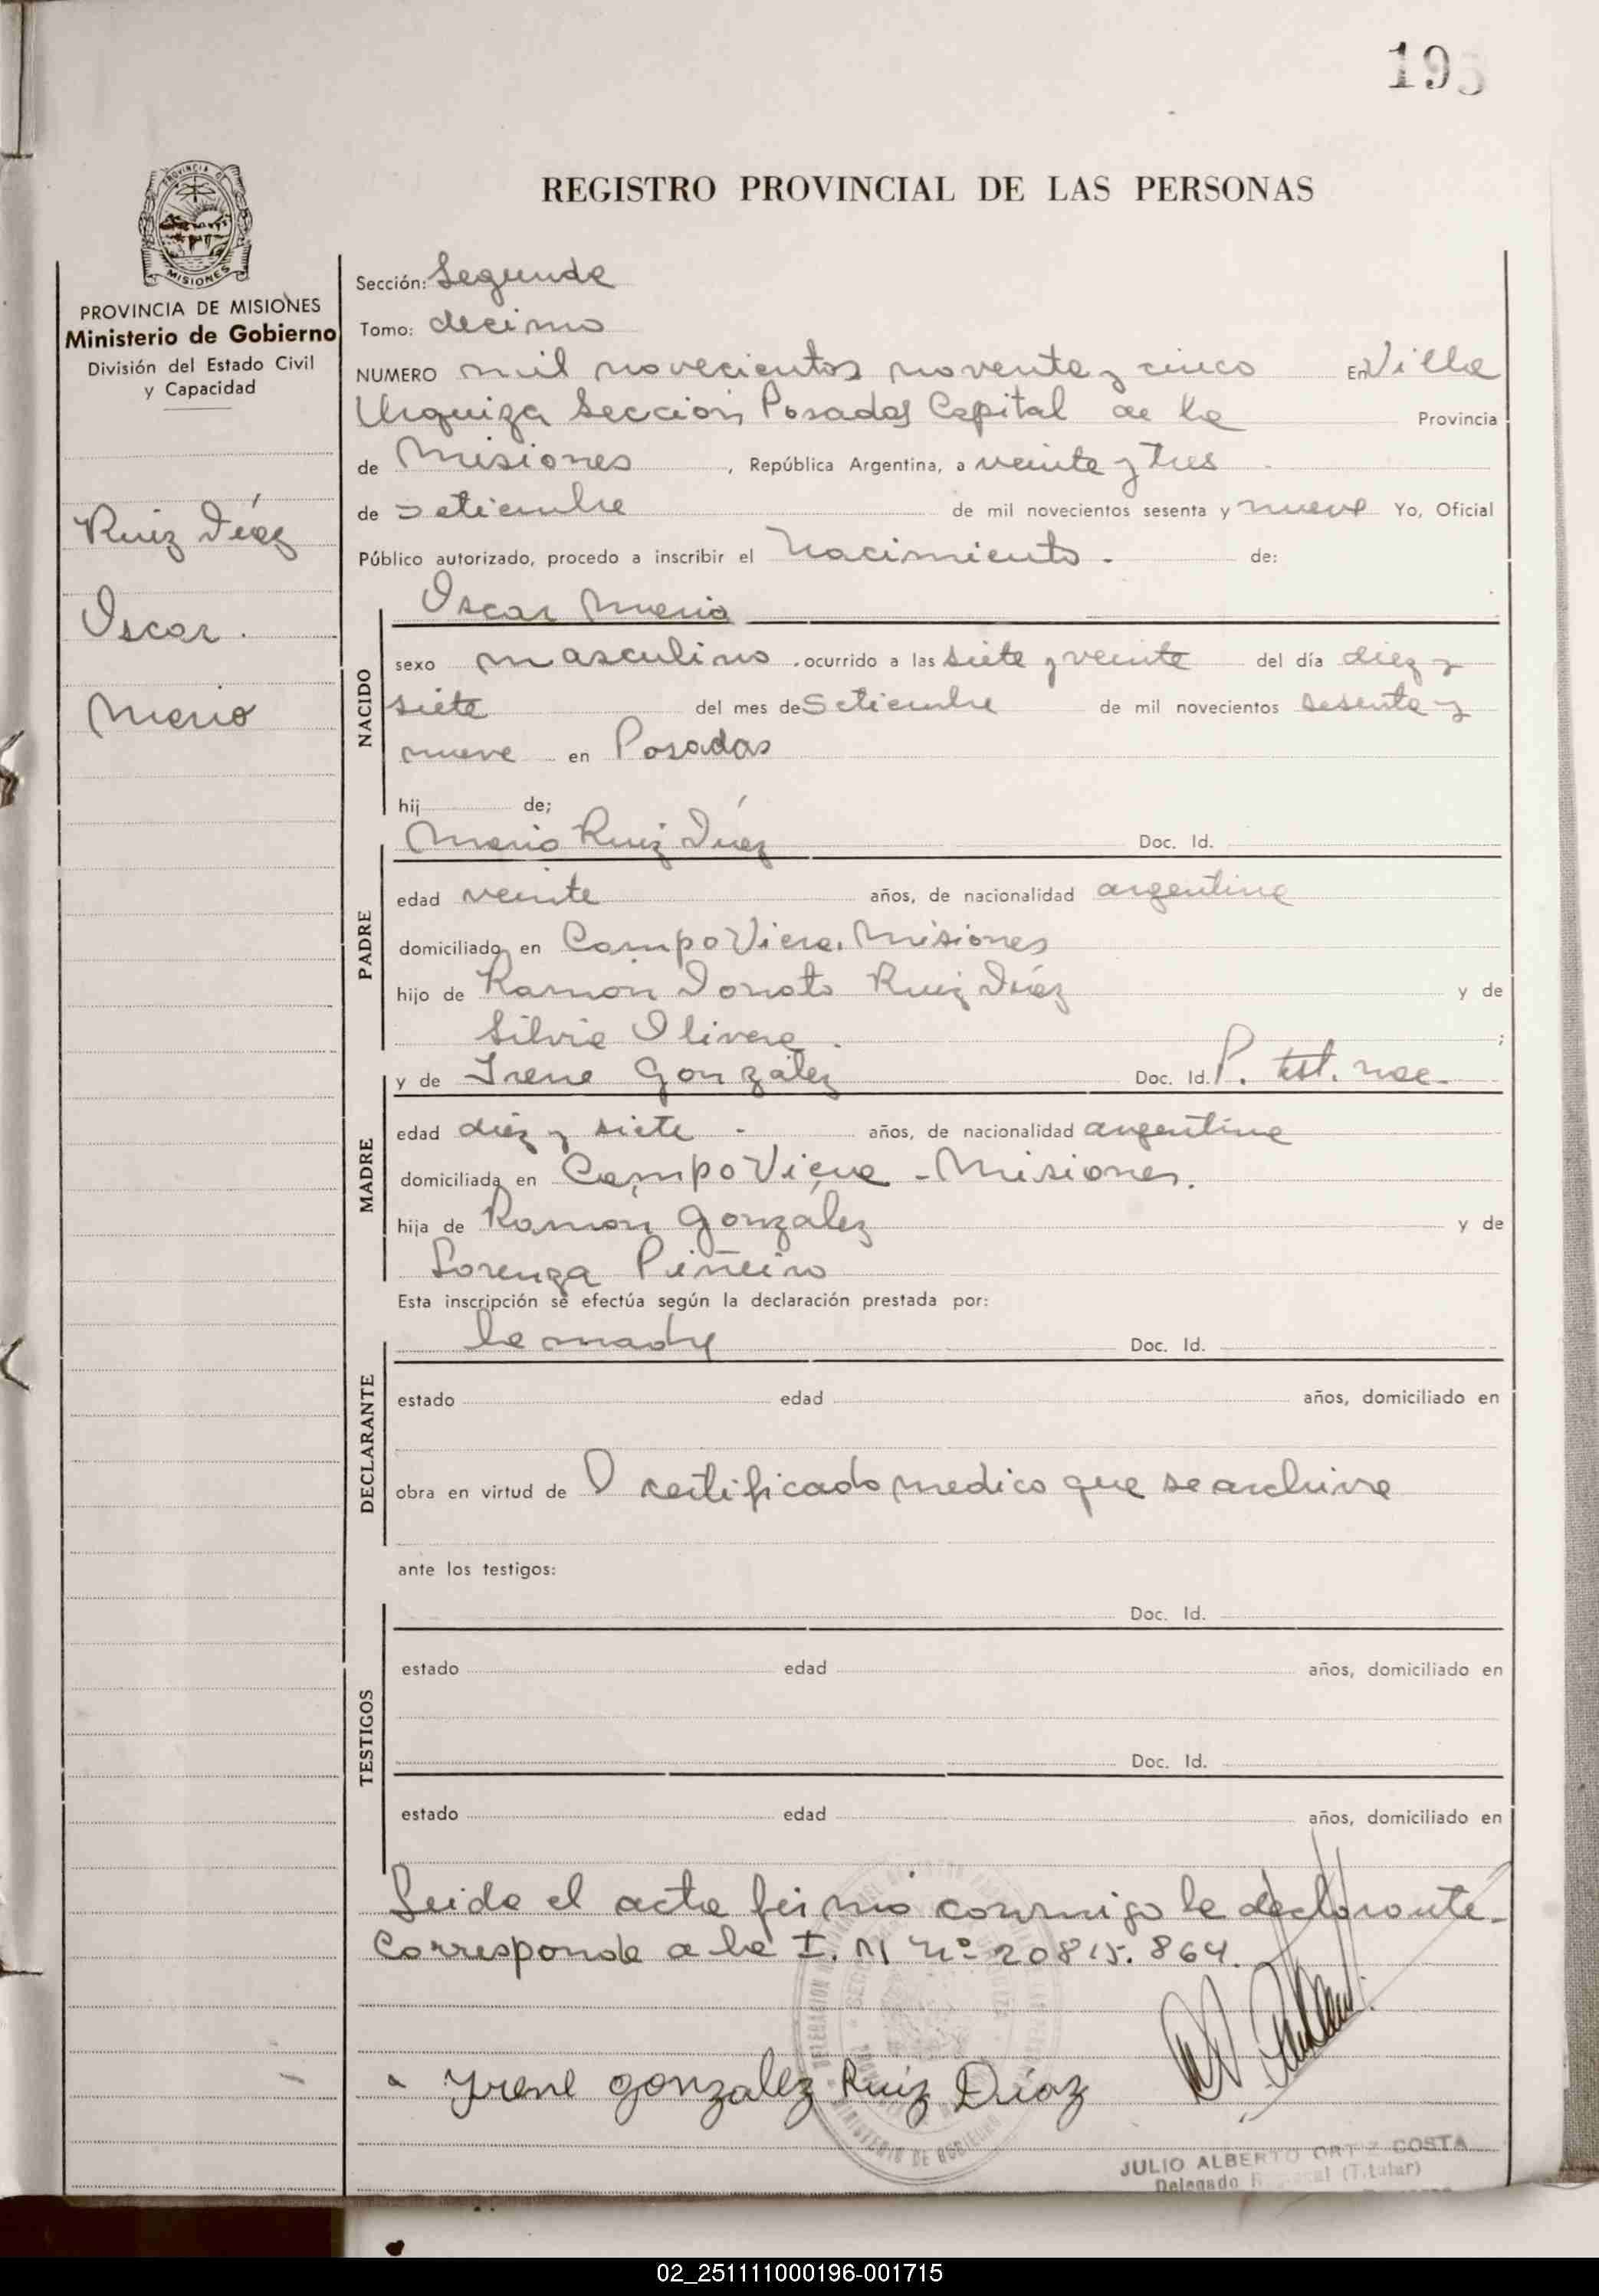 195
PROVINCIA DE
MISIONES
REGISTRO PROVINCIAL DE LAS PERSONAS
PROVINCIA DE MISIONES
Ministerio de Gobierno
División del Estado Civil
y Capacidad
Ruiz Díaz
Oscar.
Mario
Sección: Segunda
Tomo: decimo
NUMERO mil novecientos noventa y cinco En Villa
Urquiza Seccion Posadas Capital de la Provincia
de Misiones, República Argentina, a veinte y tres
de setiembre de mil novecientos sesenta y nueve Yo, Oficial
Público autorizado, procedo a inscribir el Nacimiento. de:
NACIDO
Oscar Mario
sexo masculino. ocurrido a las siete y veinte del día diez y
siete del mes de Setiembre de mil novecientos sesenta y
nueve en Posadas
hij de;
PADRE
Mario Ruiz Díaz Doc. Id.
edad veinte años, de nacionalidad argentina
domiciliado en Campo Viera. Misiones
hijo de Ramón Donato Ruiz Díaz y de
Silvia Olivera. ;
MADRE
y de Irene González Doc. Id. P. tst. nac.
edad diez y siete - años, de nacionalidad argentina
domiciliada en Campo Viera - Misiones.
hija de Ramon González y de
Lorenza Piñeiro
Esta inscripción se efectúa según la declaración prestada por:
DECLARANTE
la madre Doc. Id.
estado edad años, domiciliado en
obra en virtud de certificado medico que se archiva
ante los testigos:
TESTIGOS
Doc. Id.
estado edad años, domiciliado en
Doc. Id.
estado edad años, domiciliado en
Leida el acta firmó conmigo la declarante.
Corresponde a la I. M Nº 20815.864.
Yrene gonzalez Ruiz Díaz
MINISTERIO DE GOBIERNO
JULIO ALBERTO ORTIZ COSTA
Delegado (Titular)
02_251111000196-001715